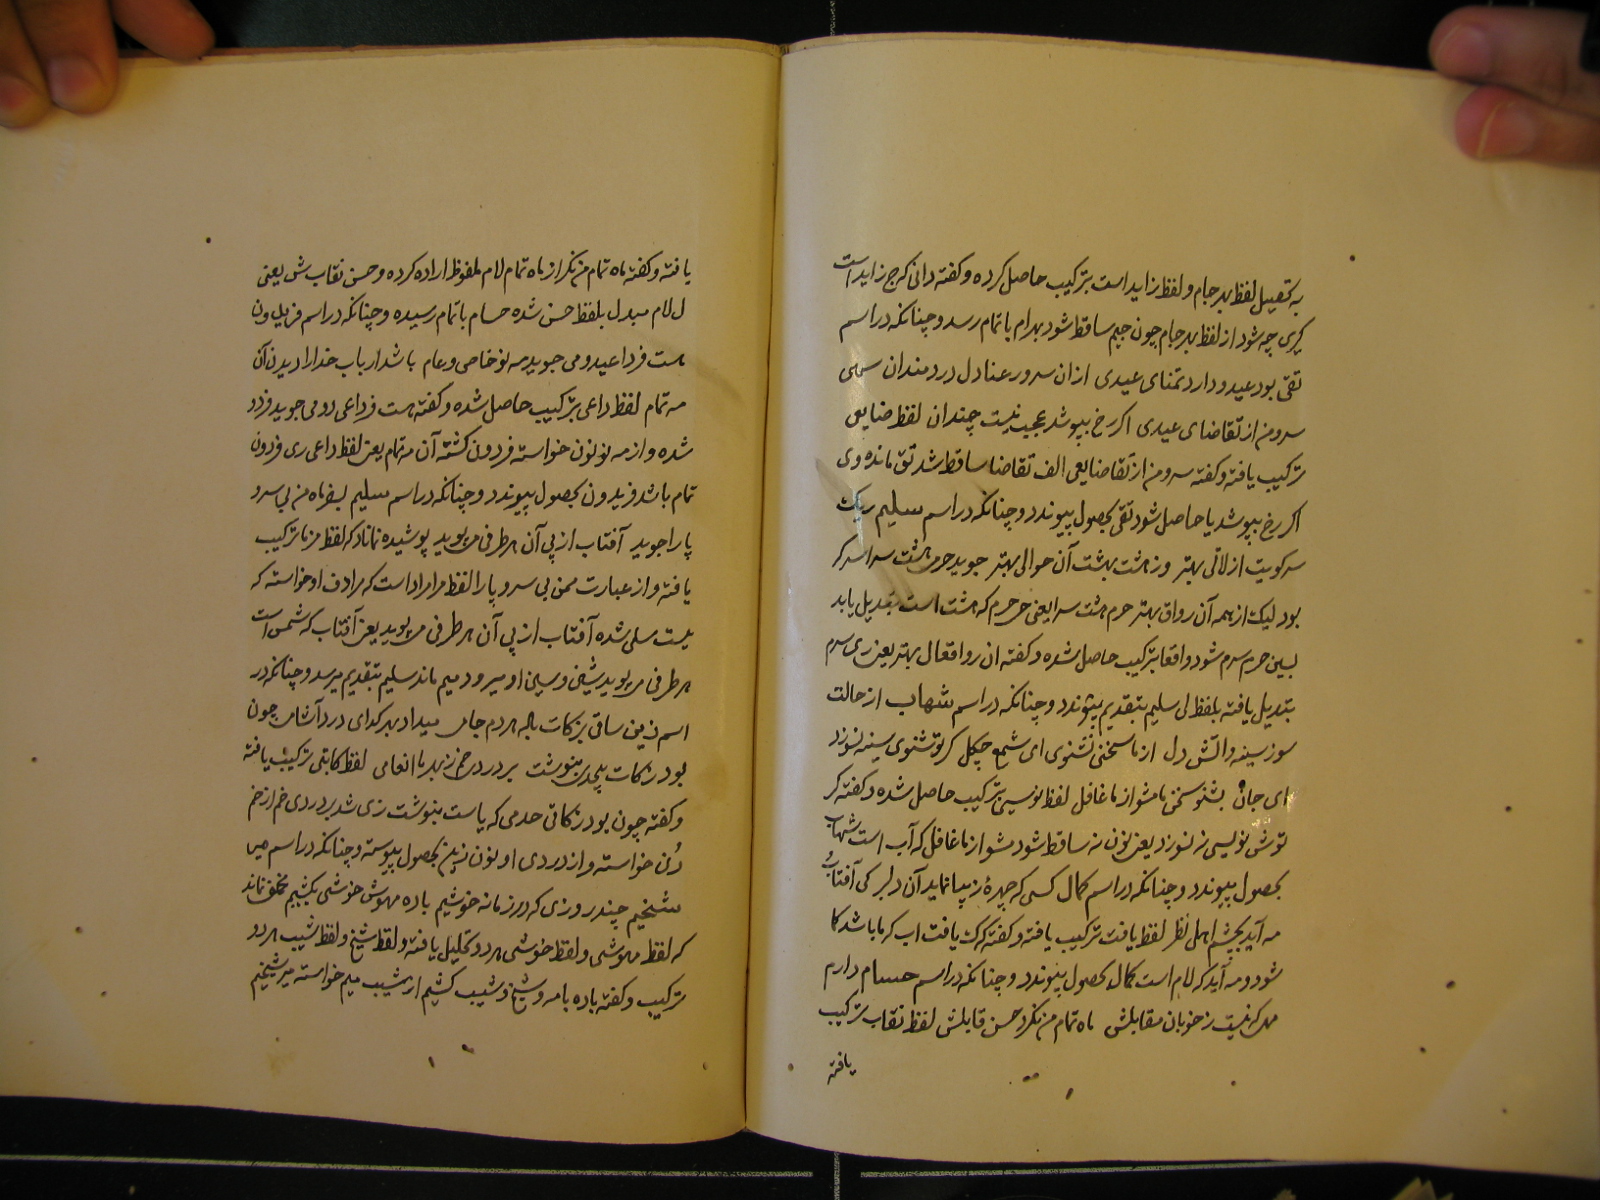 به تحصیل لفظ بدرجام و لفظ زاید است بترکیب حاصل کرده و کفته دانی کرج زاید است
چه شود از لفظ بدرجام چون جیم ساقط شود بهرام باتمام رسد و چنانکه در اسم
تقی بود عید و دارد تمنای عیدی ازان سرور عنادل دردمندان سهی
سرو من از تقاضای عیدی اکر رخ بپوشد عجب نیست چندان لفظ ضایعی
ترکیب یافته و کفته سرو من از تقاضایعی الف تقاضا ساقط شد تق مانده وی
اکر رخ بپوشد یا حاصل شود تقی بحصول پیوندد و چنانکه در اسم سلیم ریک
سر کویت از لالی بهتر وز هشت بهشت آن حوالی بهتر جوید حرم هشت سرا سر که
بود لیک از همه آن رواق بهتر حرم هشت سرا یعنی حرم که هشت است تبدیل یابد
بسین حرم سرم شود واقعا بترکیب حاصل شده و کفته ان رواقعال بهتر یعنی ری سرم
تبدیل یافته بلفظ لی سلیم بتقدیم پیوندد و چنانکه در اسم شهاب از حالت
سوز سینه و آتش دل از ما سخنی نشنوی ای شمع چکل کر تو شنوی سینه نسوزد
ای جان بشنو سخنی ما مشو از ما غافل لفظ نویسی بترکیب حاصل شده و کفته کر
توش نویسی نه نسوزد یعنی نون نه ساقط شود مشو از ما غافل که آب است شهاب
بحصول پیوندد و چنانکه در اسم کمال کسی که چهرهٔ زیبا نماید آن دلبر کی آفتاب
مه آید بچشم اهل نظر لفظ یافت ترکیب یافته و کفته که یافت اب که ما باشد کا
شود و مه آید که لام است کمال بحصول پیوندد و چنانکه در اسم حسام دارم
مه که نیست ز خوبان مقابلش ماه تمام من نکرد حسن قابلش لفظ نقاب ترکیب
یافته
یافته و کفته ماه تمام من نکر از ماه تمام لام ملفوظ اراده کرده و حسن نقاب ش یعنی
ل لام مبدل بلفظ حسن شده حسام باتمام رسیده و چنانکه در اسم فریدون
هست فردا عید و می جوید مه نو خاص و عام باشد ارباب خدا را دیدن آن
مه تمام لفظ داعی بترکیب حاصل شده و کفته هست فرداعی دو می جوید فردو
شده و از مه نو نون خواسته فردون کشته آن مه تمام یعنی لفظ داعی ری فردون
تمام باشد فریدون بحصول پیوندد و چنانکه در اسم سلیم بسفر ماه من بی سر و
پا را جوید آفتاب از پی آن هر طرفی می پوید پوشیده نماناد که لفظ مرنا ترکیب
یافته و از عبارت من بی سر و پا را لفظ مرا مراد است که مرادف او خواسته که
نیست سلی شده آفتاب از پی آن هر طرفی می پوید یعنی آفتاب که شمس است
هر طرفی می پوید شینی و سین او میرود میم ماند سلیم بتقدیم میرسد و چنانکه در
اسم زین ساقی بزکات باده هر دم جامی میداد بهر کدای درد آشامی چون
بود زکات بنوشت بر دردی خم زبهر ما انعامی لفظ کاتبی ترکیب یافته
و کفته چون بود زکاتی حدمی که یاست بنوشت زی شد بر دردی خم از خم
دن خواسته و از دردی او نون زین بحصول پیوسته و چنانکه در اسم میر
شیخم چند روزی که در زمانه خوشیم باده مهوش خوشی بکشیم مخفی نماند
که لفظ مهوشی و لفظ خوشی هر دو تحلیل یافته و لفظ شیخ و لفظ شیب هر دو
ترکیب و کفته باده بامه و شیخ و شیب کشیم از شیب میم خواسته میر شیخم